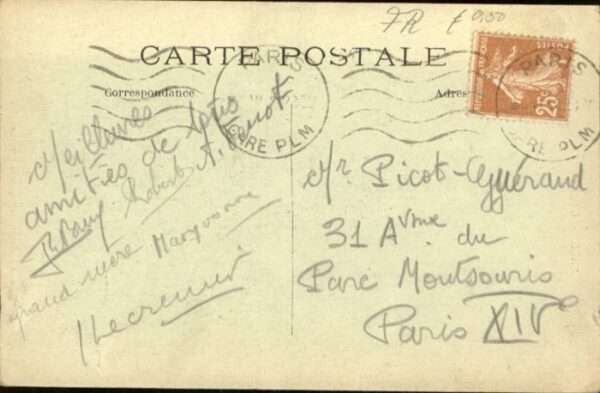 FR £ 0,50
CARTE POSTALE
Correspondance
Adres
PARIS
GARE PLM
PARIS
GARE PLM
25c
Meilleures
amitiés de tous
Robert A.
grand mère Maryvonne
Mr Picot-Guérand
31 Avnue du
Parc Montsouris
Paris XIVe